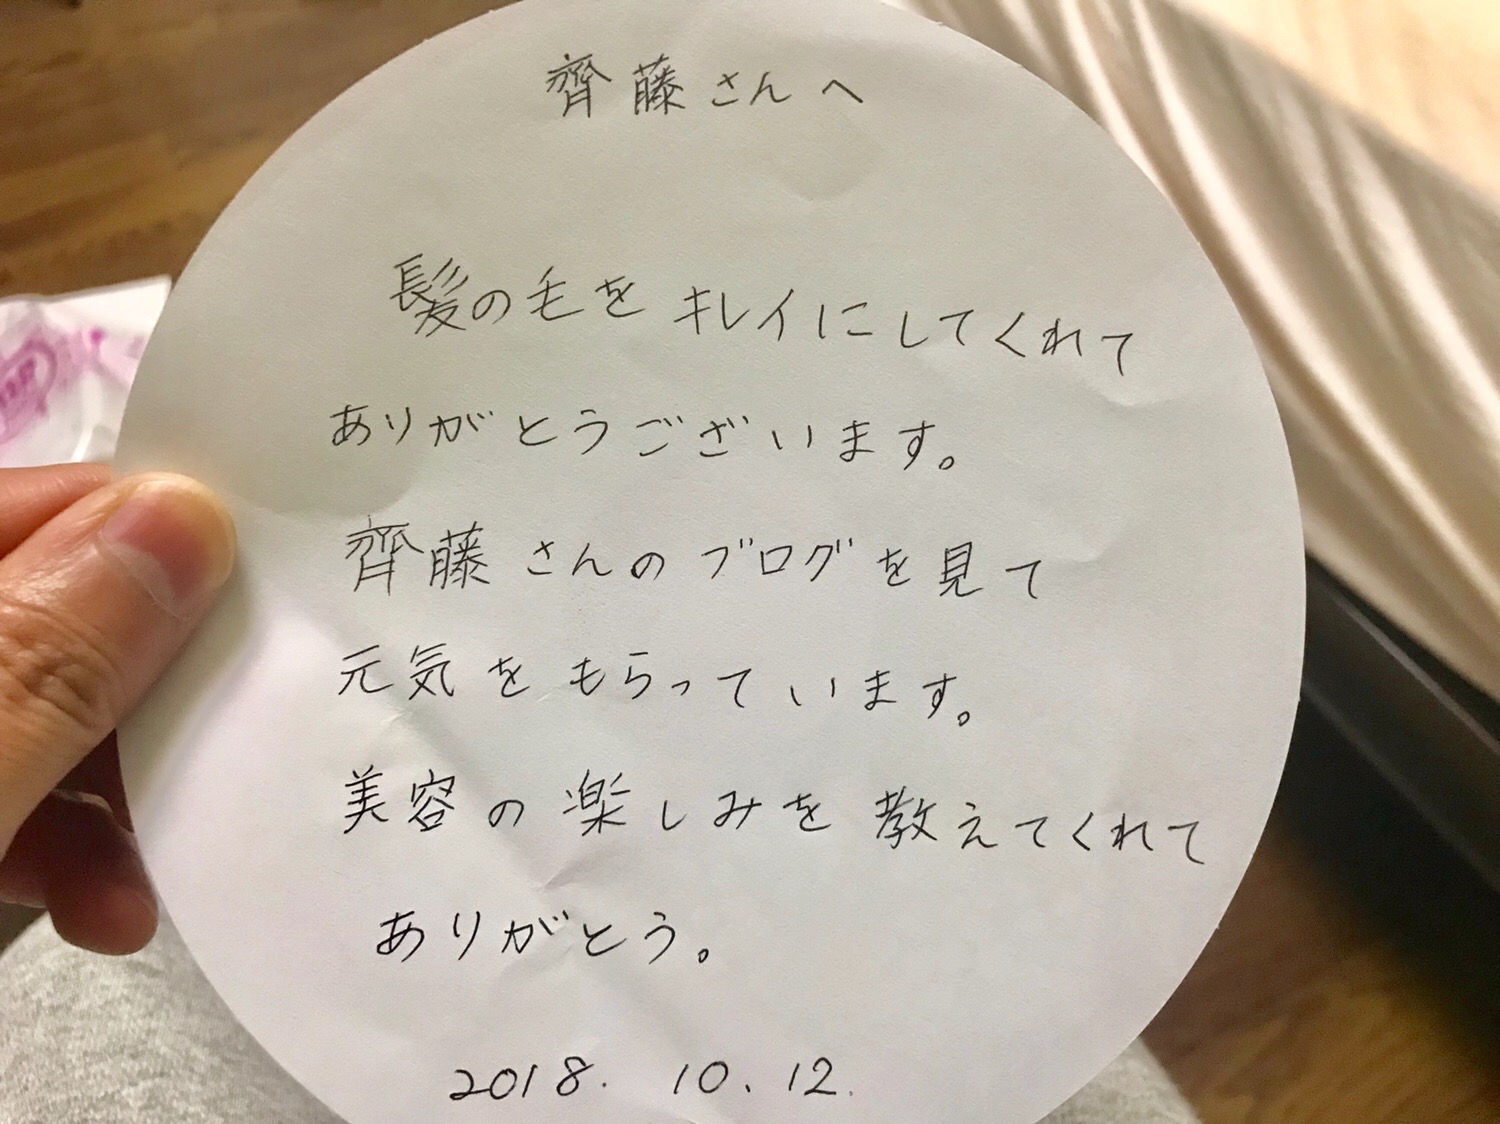 齊藤さんへ
髪の毛をキレイにしてくれて
ありがとうございます。
齊藤さんのブログを見て
元気をもらっています。
美容の楽しみを教えてくれて
ありがとう。
2018. 10. 12.